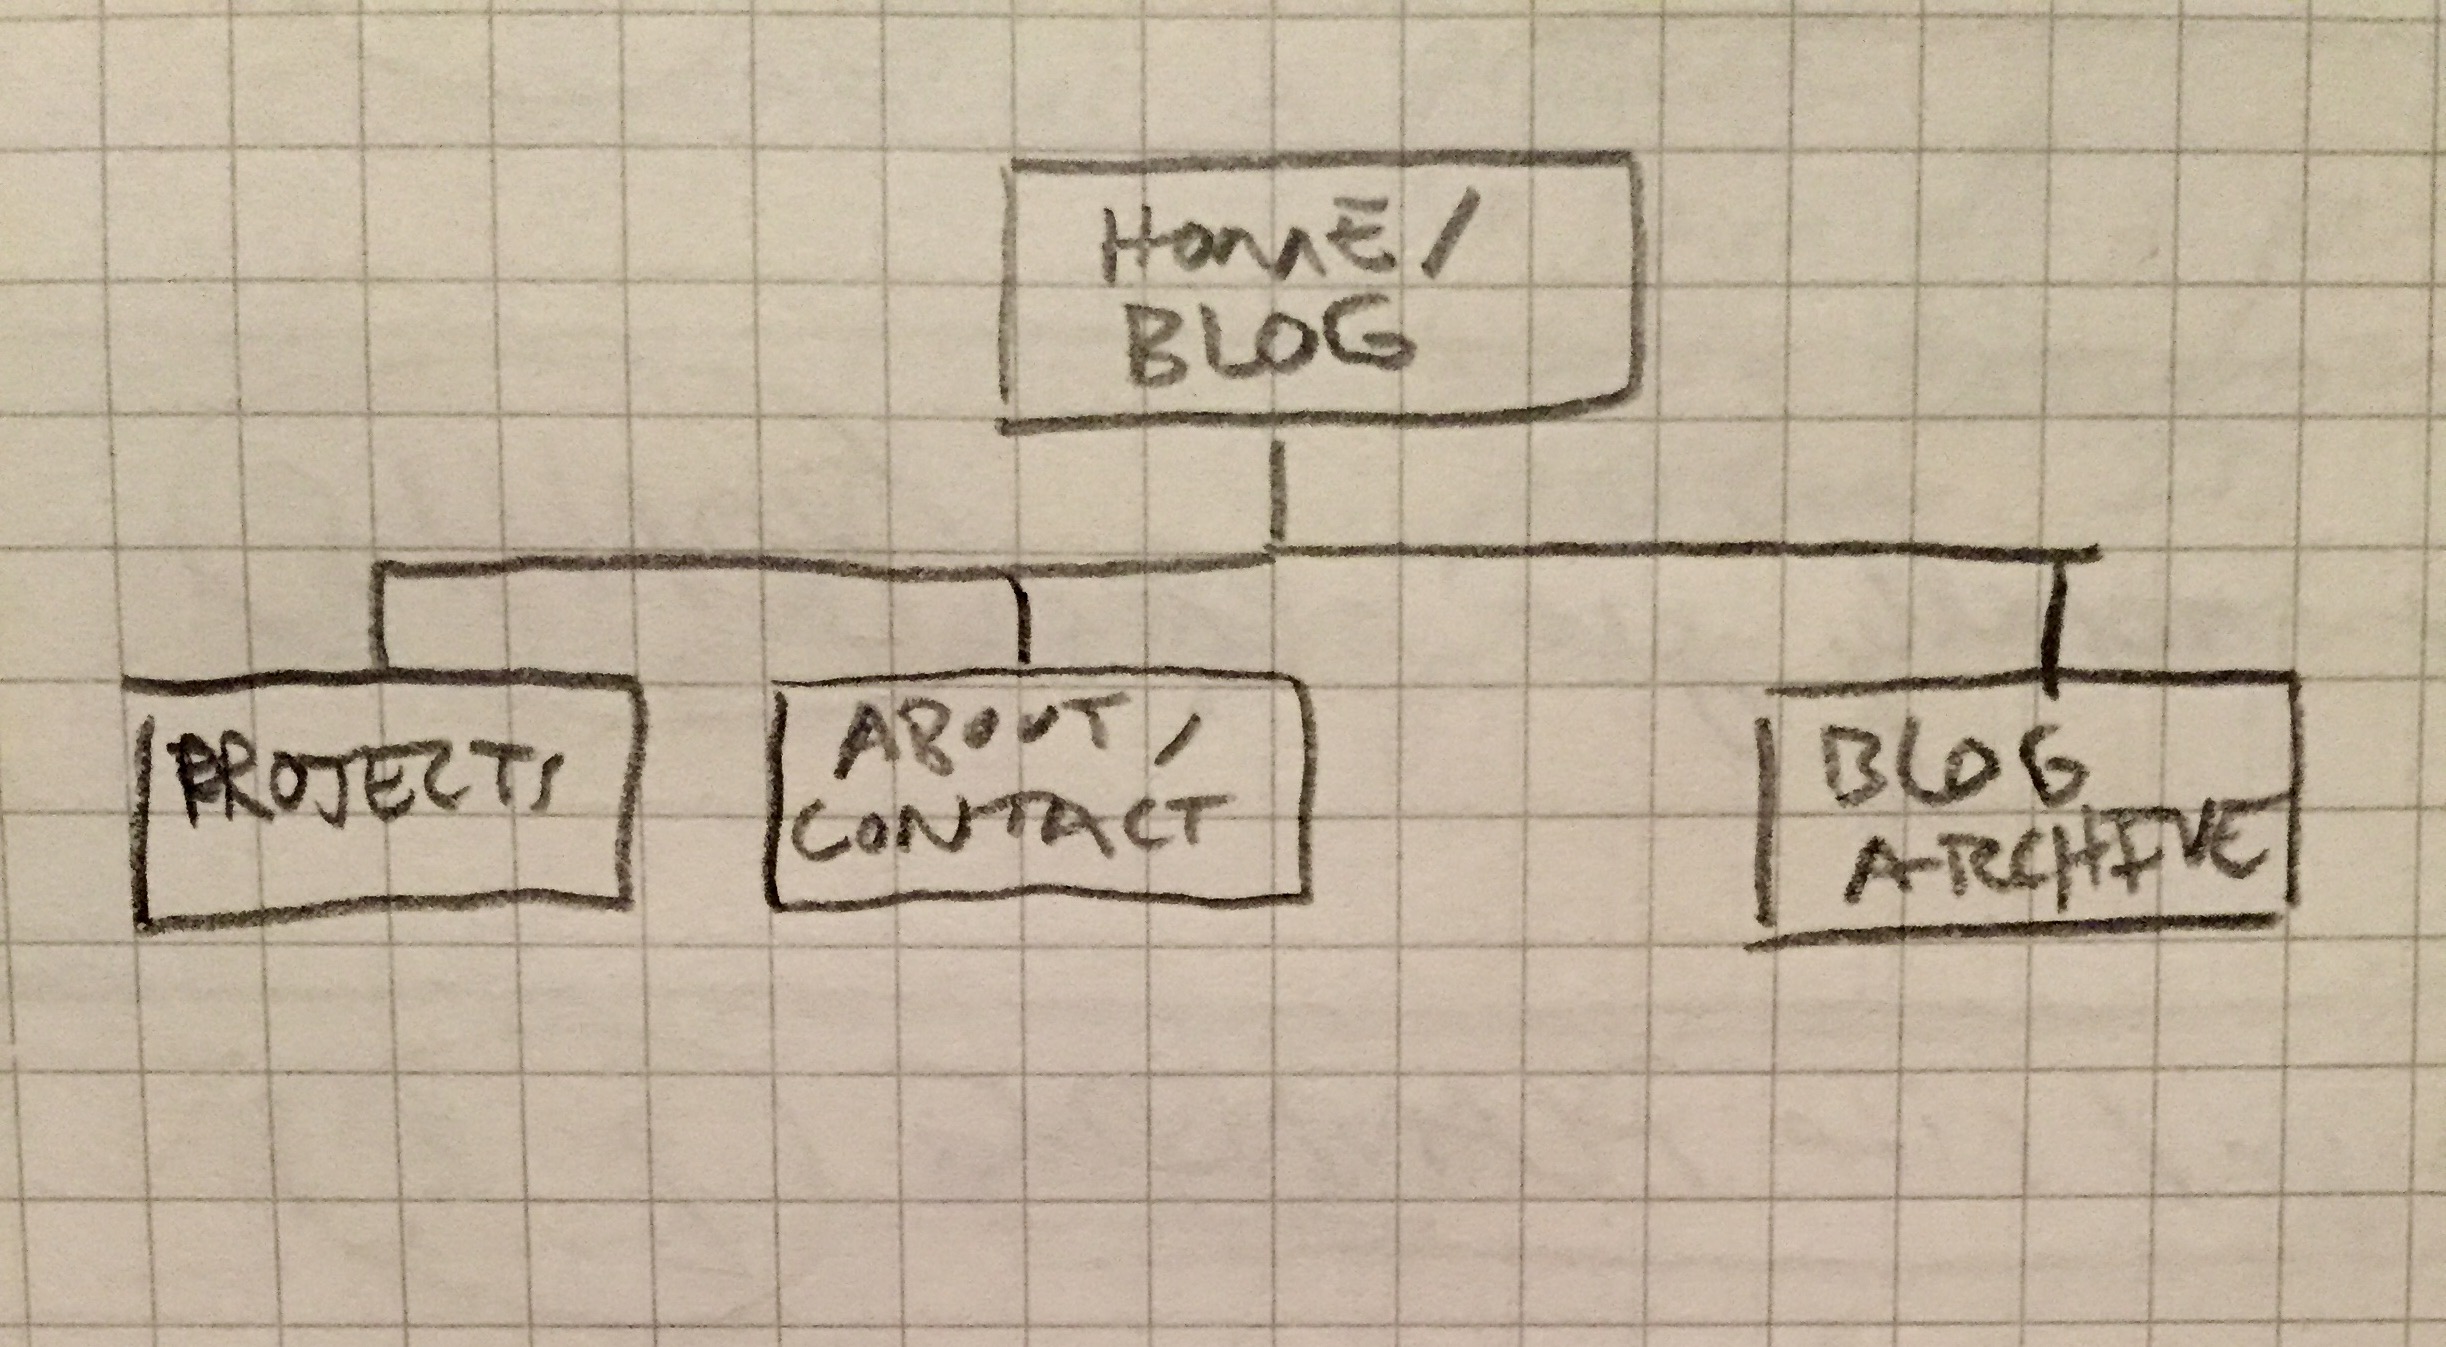 HOME/
BLOG
PROJECTS
ABOUT/
CONTACT
BLOG
ARCHIVE